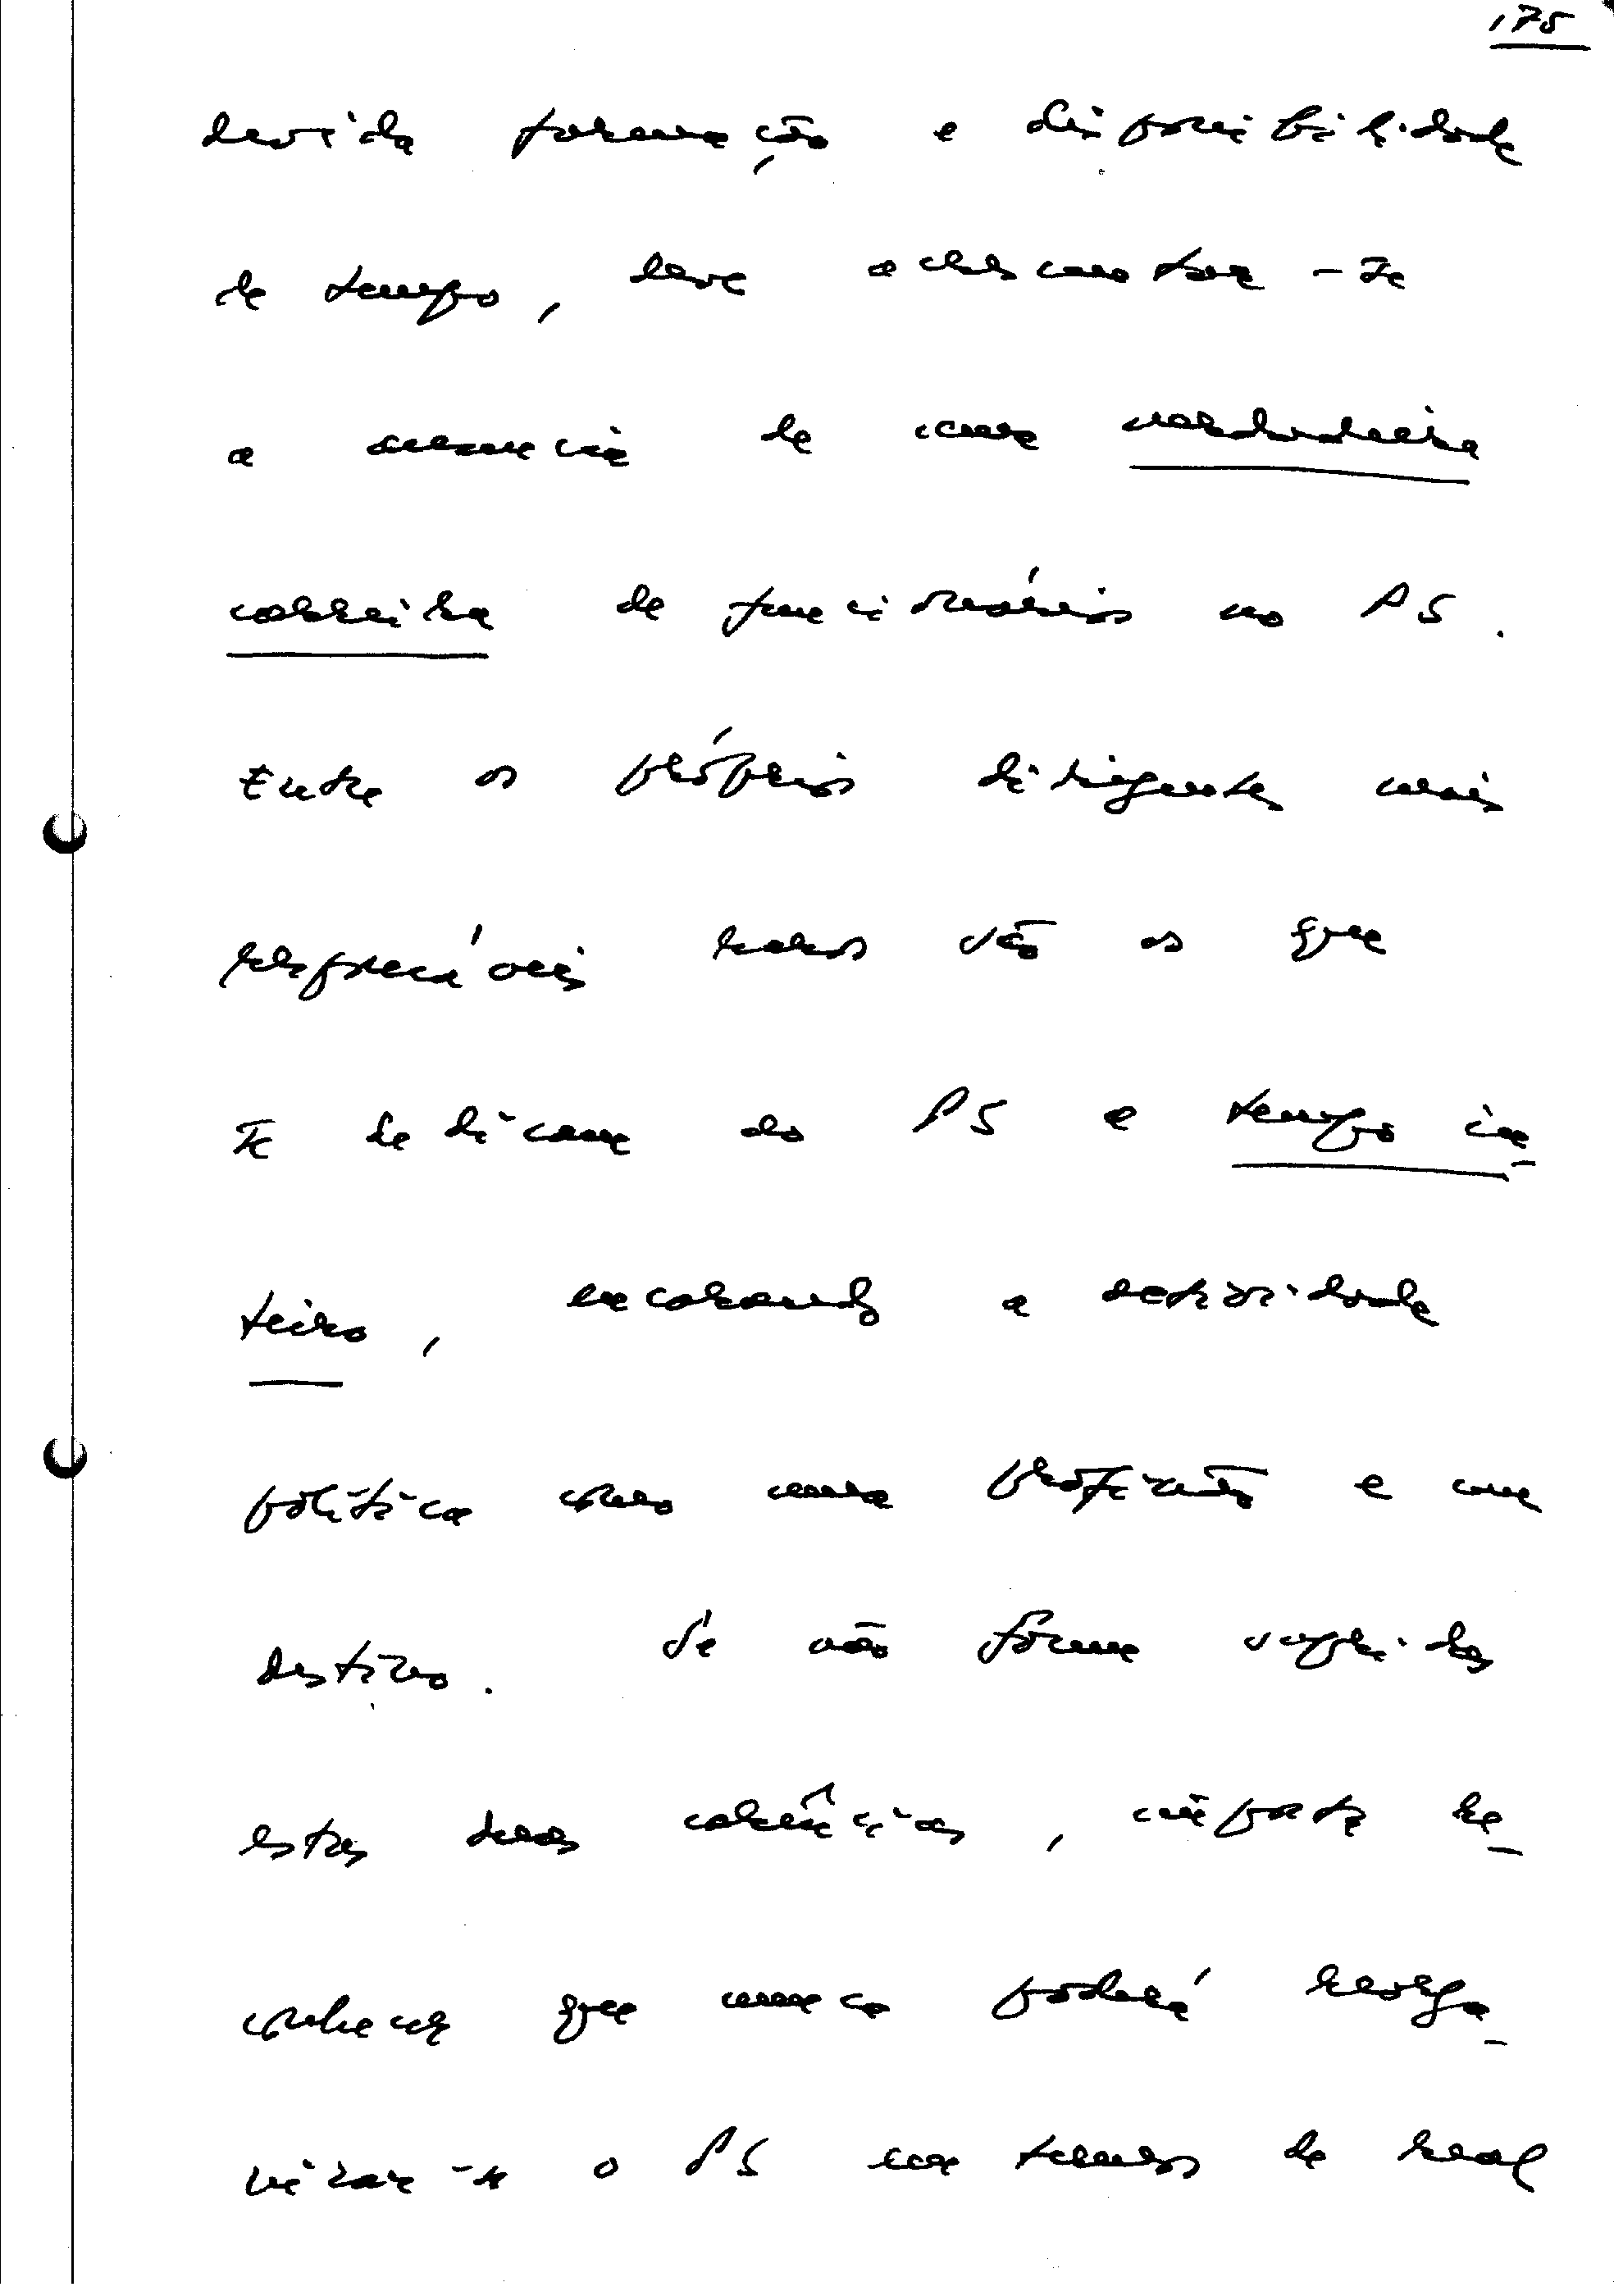 175
devida formação e disponibilidade
de tempo, deve acrescentar-se
a ausência de uma verdadeira
carreira de funcionários no PS.
Entre os próprios dirigentes mais
responsáveis raros são os que
se dedicam ao PS a tempo in-
teiro, encarando a actividade
política como uma profissão e um
destino. Se não forem supridas
estas duas carências, importa re-
conhecer que nunca poderá reorga-
nizar-se o PS em termos de real